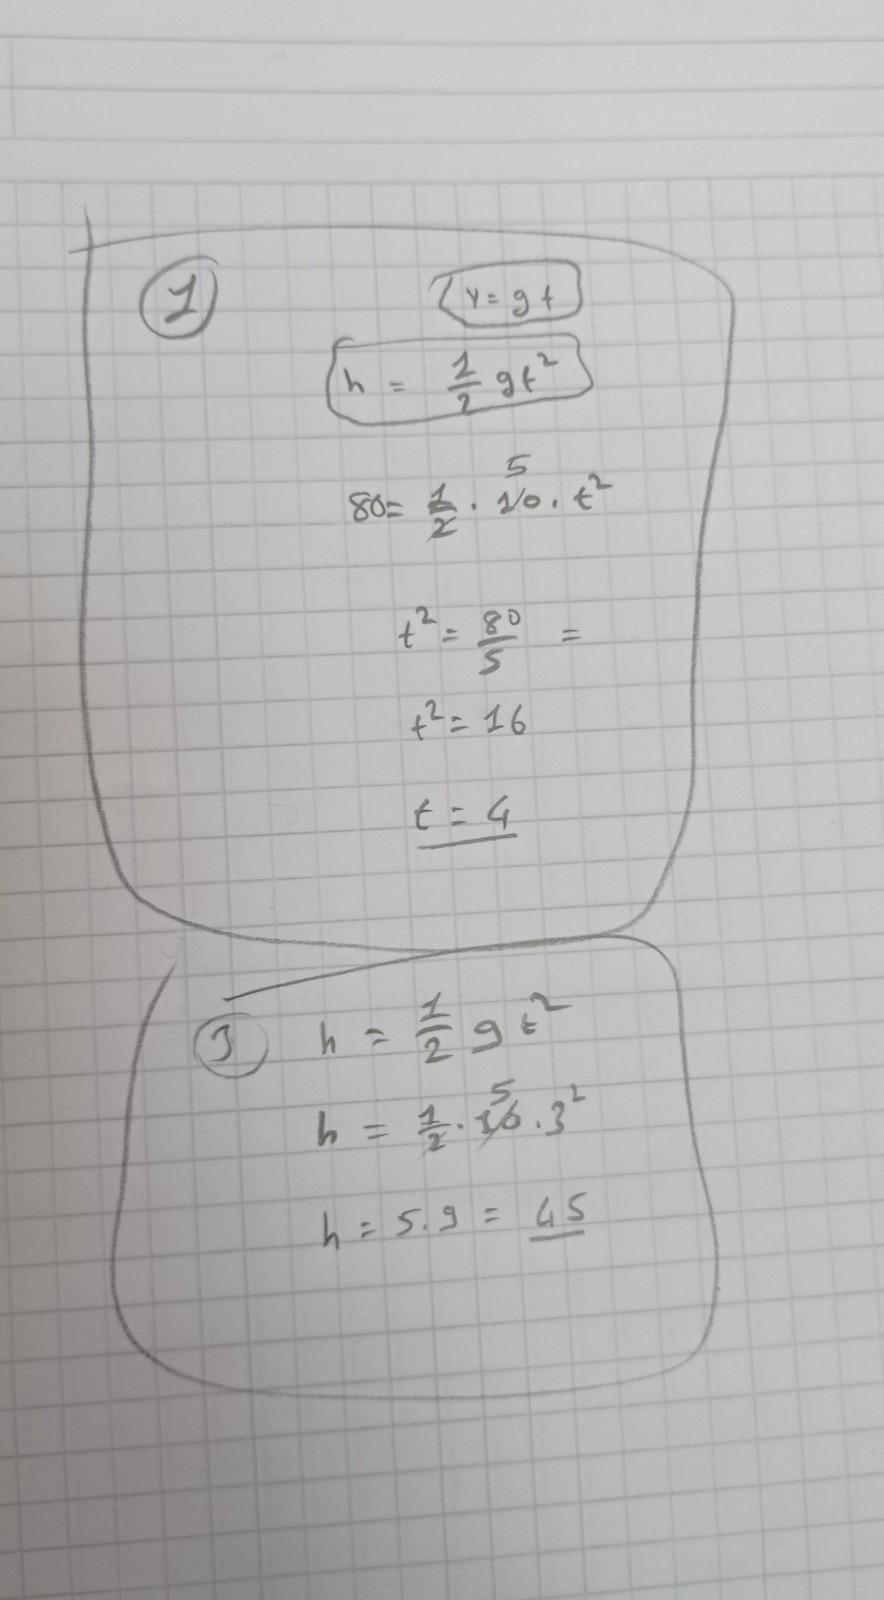 1
v = gt
h = 1/2 gt²
5
80 = 1/2 · 10 · t²
t² = 80/5 =
t² = 16
t = 4
3 h = 1/2 g t²
5
h = 1/2 · 10 · 3²
h = 5.9 = 45